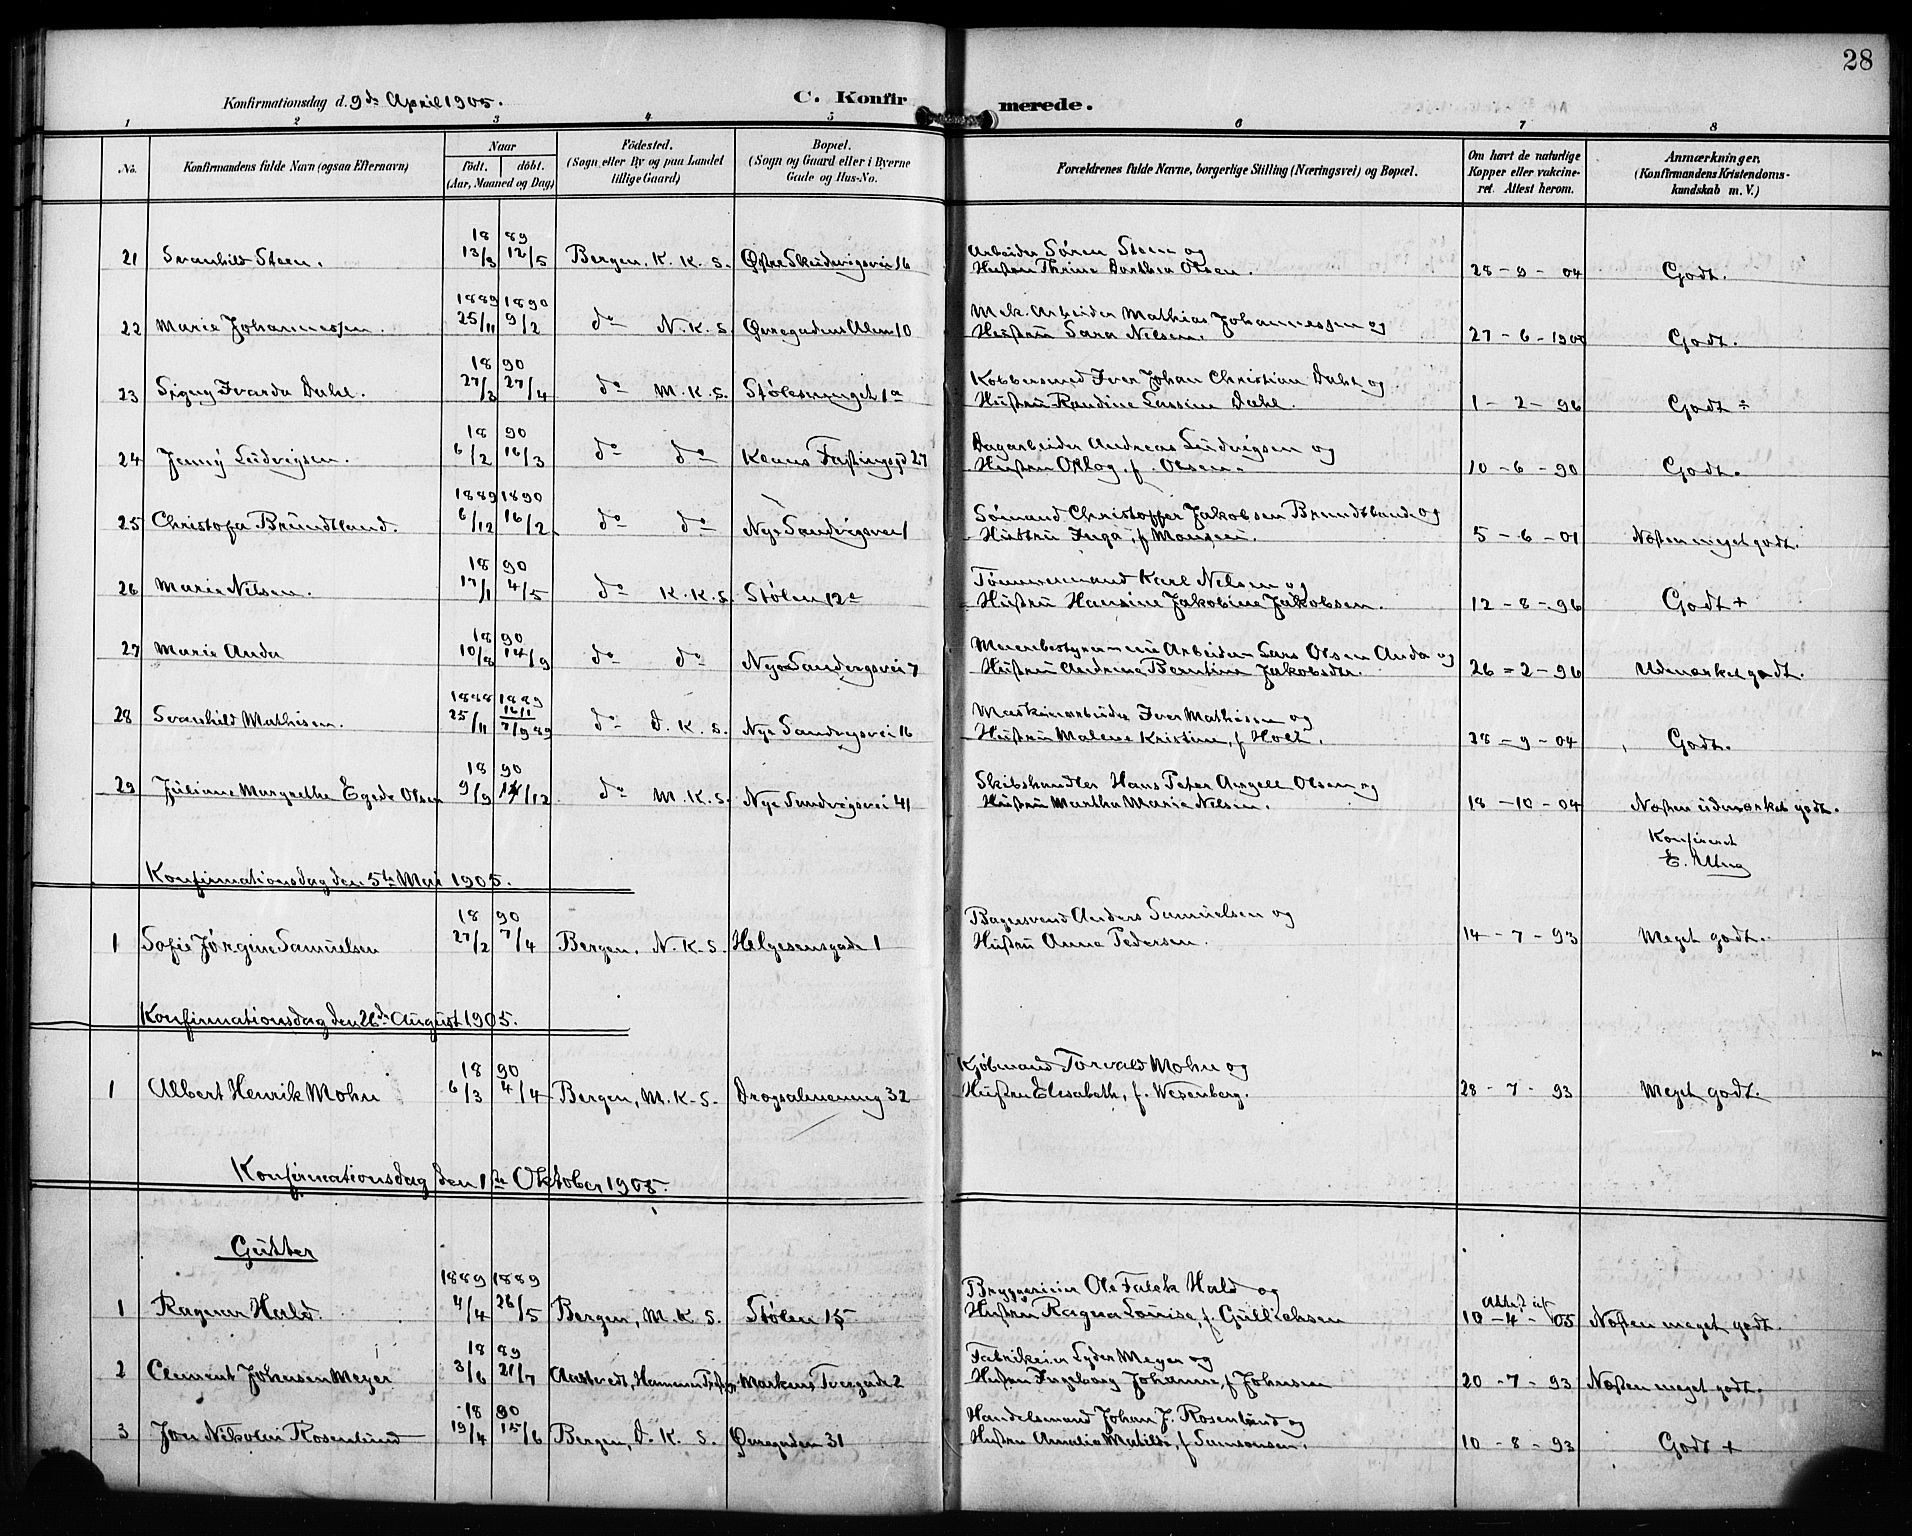 28
Konfirmationsdag d. 9de April 1905.
C. Konfirmerede.
1 2 3 4 5 6 7 8
No.
Konfirmandens fulde Navn (ogsaa Efternavn)
Naar
født. døbt.
(Aar, Maaned og Dag)
Fødested.
(Sogn eller By og paa Landet
tillige Gaard)
Bopæl.
(Sogn og Gaard eller i Byerne
Gade og Hus-No.
Forældrenes fulde Navne, borgerlige Stilling (Næringsvei) og Bopæl.
Om havt de naturlige
Kopper eller vakcine-
ret. Attest herom.
Anmærkninger.
(Konfirmandens Kristendoms-
kundskab m. V.)
18 89
Arbeider Sören Steen og
21 Svanhild Steen. 13/3 12/5 Bergen, K. K. S. Østre Skudevigsvei 16 Hustru Thrine Dorthea Olsen. 28-9-04 Godt.
1889 1890
Mek. Arbeider Mathias Johannessen og
22 Marie Johannessen. 25/11 9/2 do N. K. S. Øvregadens Alm 10 Hustru Sara Nilsen. 27-6-1900 Godt.
18 90
Kobbersmed Iver Johan Christian Dahl og
23 Signy Ivarda Dahl. 27/3 27/4 do M. K. S. Stølesmuget 1a Hustru Randine Lassine Dahl. 1-2-96 Godt ÷
18 90
Dagarbeider Andreas Ludvigsen og
24 Jenny Ludvigsen. 6/2 16/3 do do Klaus Fastings 27 Hustru Oklog, f. Olsen. 10-6-90 Godt.
1889 1890
Sømand Christoffer Jakobsen Brundtland og
25 Christofa Brundtland. 6/12 16/2 do do Nye Sandvigsvei 1 Hustru Inga, f Monsen. 5-6-01 Næsten meget godt.
18 90
Tømmermand Karl Nilsen og
26 Marie Nilsen. 17/1 4/5 do K. K. S. Stølen 12a Hustru Hansine Jakobine Jakobsen. 12-8-96 Godt +
18 90
Meieribestyrer Arbeider Lars Olsen Anda og
27 Marie Anda 10/8 14/9 do do Nye Sandvigsvei 7 Hustru Andrine Berntine Jakobsdtr. 26=2-96 Udmærket godt.
1888 1889
16/1
Maskinarbeider Iver Mathisen og
28 Svanhild Mathisen. 25/11 7/9 89 do D. K. S. Nye Sandvigsvei 16 Hustru Malene Kristine, f Holt. 28-9-04 Godt.
18 90
Skibshandler Hans Peter Angell Olsen og
29 Juliane Margrethe Egede Olsen 9/9 14/12 do M. K. S. Nye Sandvigsvei 41 Hustru Martha Marie Nilsen. 18-10-04 Næsten udmærket godt.
Konfereret
Konfirmationsdag den 5te Mai 1905.
18 90
Bagersvend Anders Samuelsen og
1 Sofie Jørgine Samuelsen 27/2 7/4 Bergen, N. K. S. Helgesensgade 1 Hustru Anne Pedersen. 14-7-93 Meget godt.
Konfirmationsdag den 26de August 1905.
18 90
Kjøbmand Torvald Mohn og
1 Albert Henrik Mohn 6/3 4/4 Bergen, M. K. S. Dragsalmening 32 Hustru Elisabeth, f. Wesenberg. 28-7-93 Meget godt.
Konfirmationsdag den 1ste Oktober 1905.
Gutter
1889 1889
Bryggerieier Ole Falck Hald og
1 Ragnar Hald. 4/4 26/5 Bergen, M. K. S. Stølen 15 Hustru Ragna Louise, f. Gullachsen Attest af 10-4-05 Næsten meget godt.
18 89
Fabrikeier Lyder Meyer og
2 Clement Johnsen Meyer 3/6 21/7 Aastvedt, Hammer Markens Tvergade 2 Hustru Ingeborg Johanne, f Johnsen 20-7-93 Næsten meget godt.
18 90
Handelsmand Johan J. Rosenlund og
3 Jon Nikolai Rosenlund 19/4 15/6 Bergen, D. K. S. Øvregaden 31 Hustru Amalia Matilde, f Samsonsen. 10-8-93 Godt +